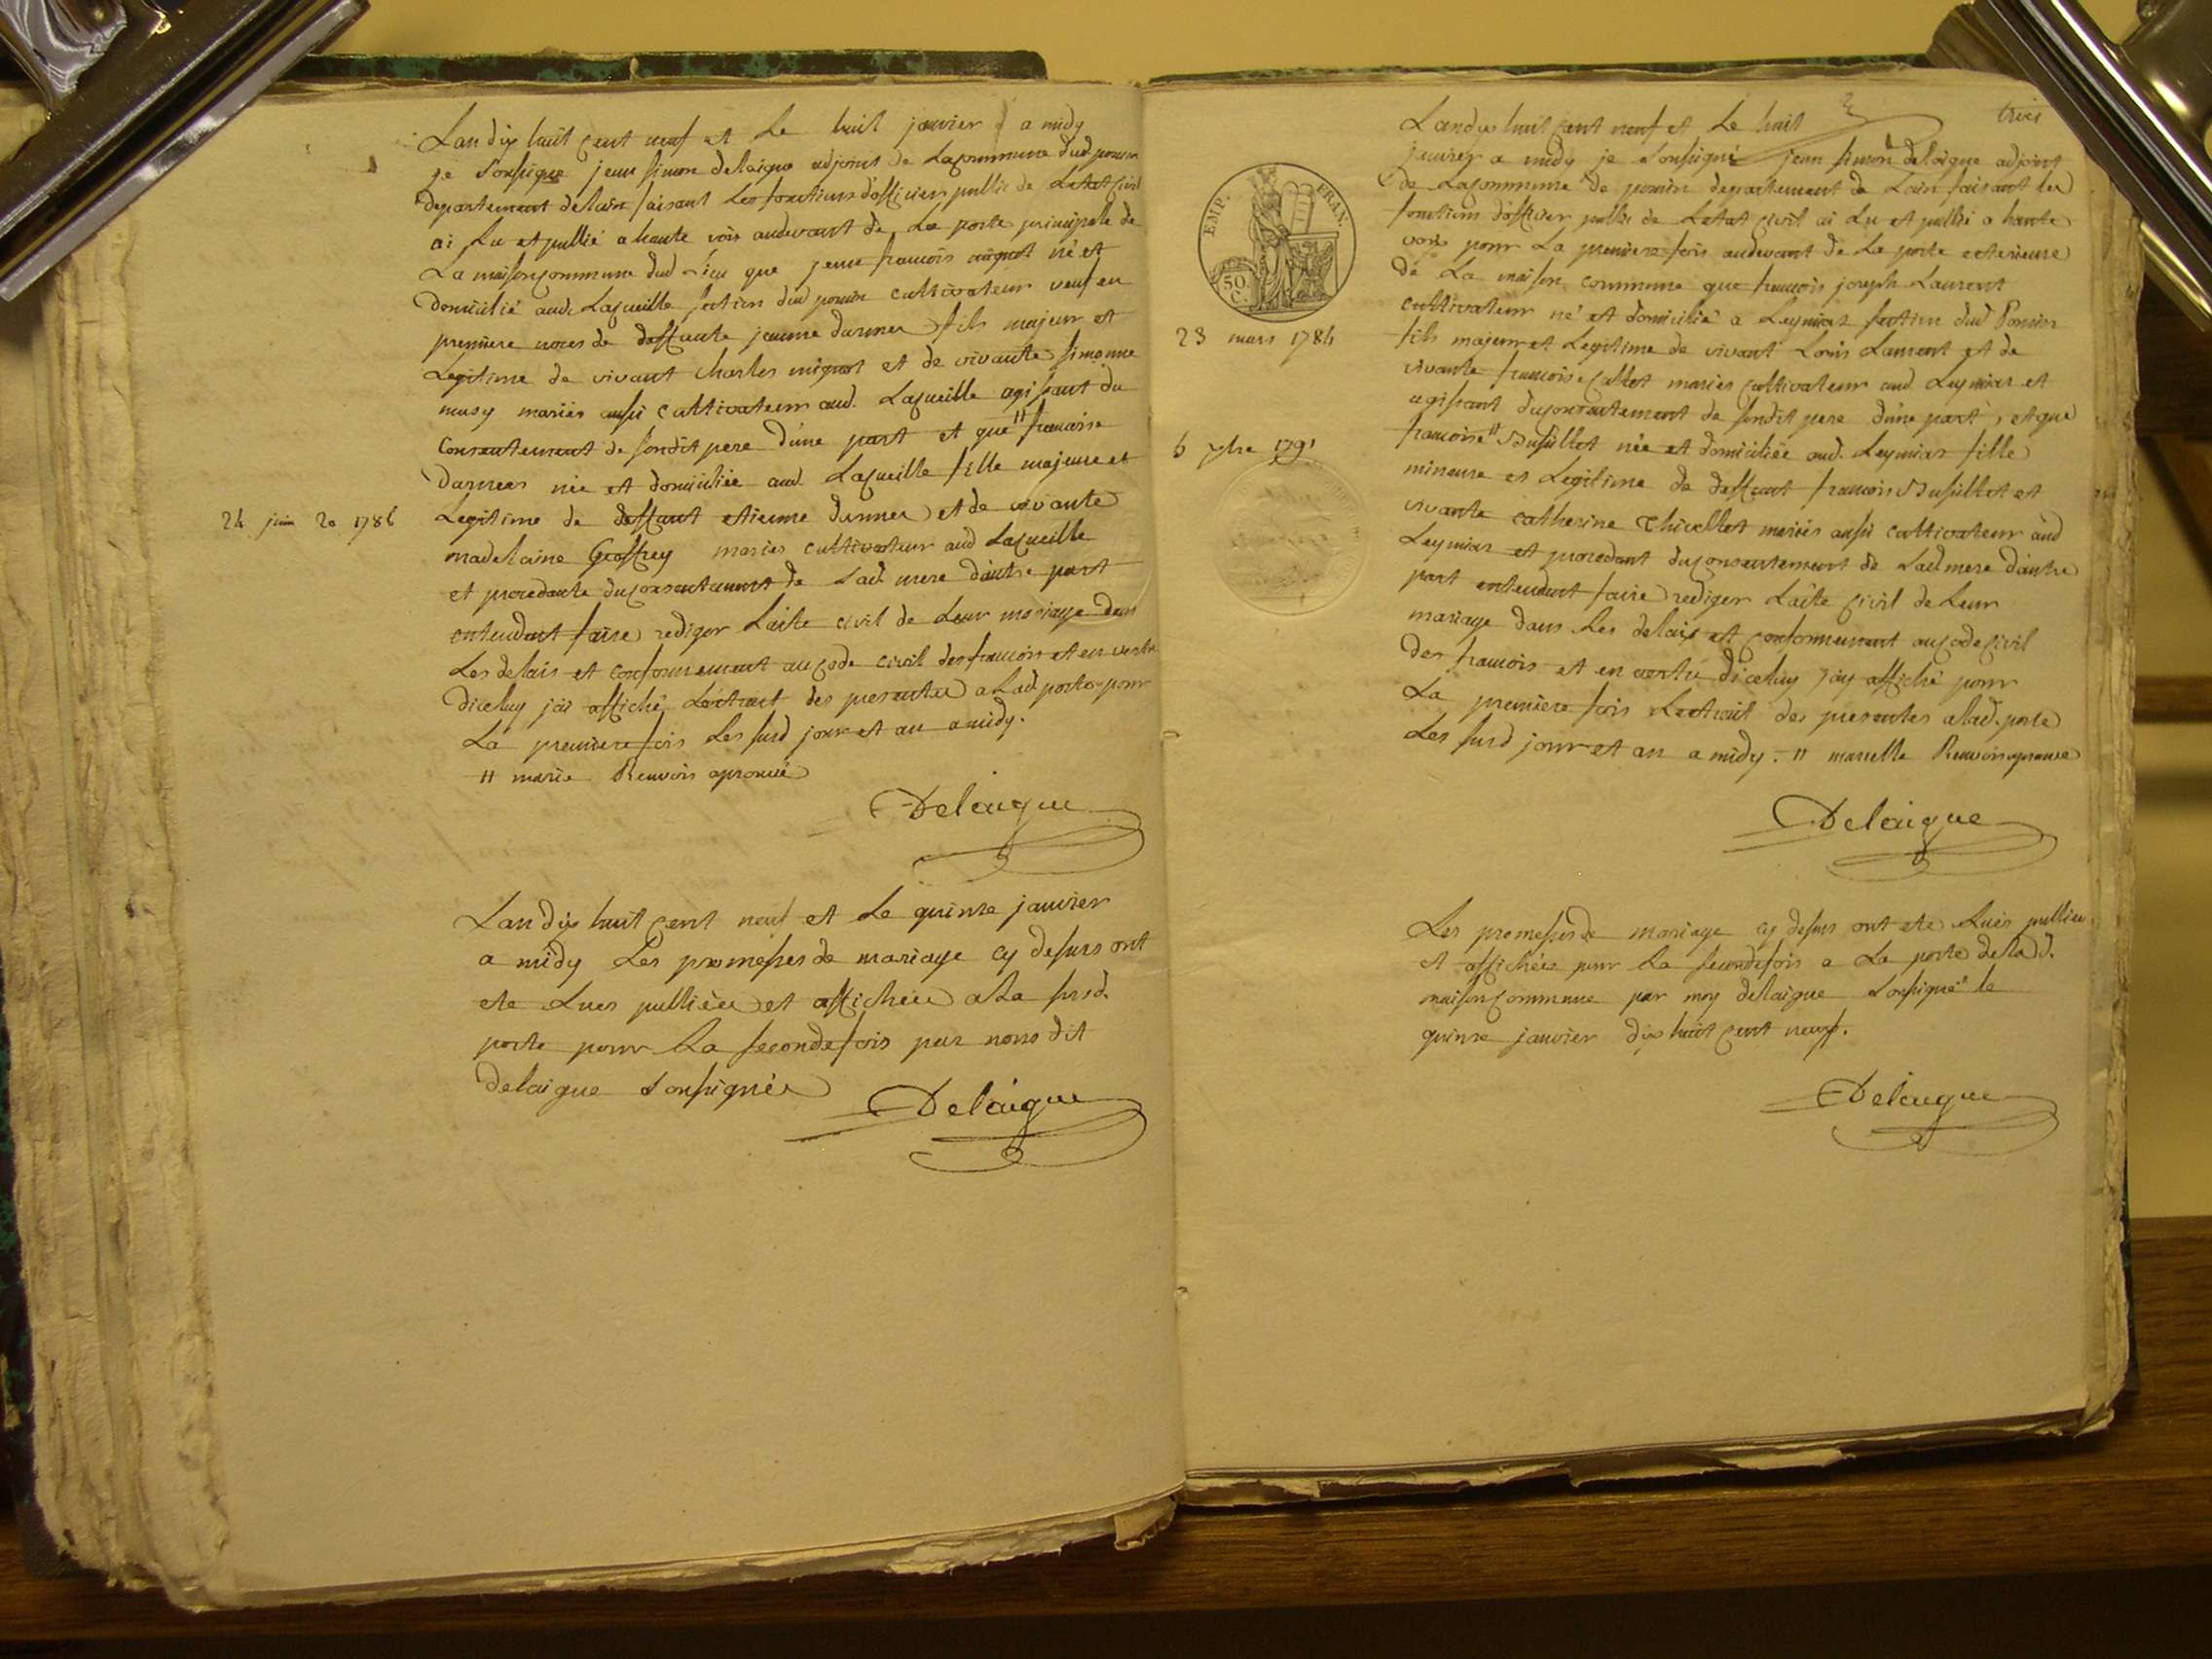 Lan dix huit cent neuf et le huit janvier a midy
je soussigne jean simon delaigue adjoint de la commune dud poncin
departement delain faisant les fonctions dofficier public de létat civil
ai lu et publié a haute voix audevant de la porte principale de
La maison commune dud lieu que jean francois mignot né et
domicilié aud. Laqueille section dud poncin cultivateur veuf en
premiere noces de deffunte jeanne darmer fils majeur et
Legitime de vivant charles mignot et de vivante simonne
musy mariés aussi cultivateur aud. Laqueille agissant du
consentement de sondit pere d'une part et que " francoise
darmer née et domiciliée aud. Laqueille fille majeure et
24 juin 20 1786
Legitime de deffunt etienne darmer et de vivante
madelaine Geoffrey mariés cultivateur aud Laqueille
et procedante du consentement de Lad mere dautre part
entendant faire rediger Lacte civil de Leur mariage dans
Les delais et conformement au code civil des francois et en vertu
diceluy jai affiché Lextrait des presentes a Lad porte pour
La premiere fois Les susd jour et an a midy.
" marie Renvoi aprouvé
Delaigue
Lan dix huit cent neuf et Le quinze janvier
a midy Les promesses de mariage cy dessus ont
ete Lues publiées et affichées a La susd.
porte pour La seconde fois par nous dit
delaigue soussignée
Delaigue
3
trois
EMP. FRAN.
50 C.
Lan dix huit cent neuf et Le huit
janvier a midy je soussigné jean simon delaigue adjoint
de La commune de poncin departement de Lain faisant les
fonctions dofficier public de Letat civil ai Lu et publié a haute
voix pour La premiere fois audevant de La porte exterieure
de La maison commune que francois joseph Laurent
cultivateur né et domicilié a Leymiat section dud Poncin
23 mars 1784
fils majeur et Legitime de vivant Louis Laurent et de
vivante francoise Callet mariés cultivateur aud. Leymiat et
agissant du consentement de sondit pere dune part, et que
6 7bre 1791
francoise " Busillet née et domiciliée aud. Leymiat fille
mineure et Legitime de deffunt francois Busillet et
vivante catherine Chivellet mariés aussi cultivateur aud
Leymiat et procedant du consentement de Lad mere dautre
part entendant faire rediger Lacte civil de Leur
mariage dans Les delais et conformement au code civil
des francois et en vertu diceluy jay affiché pour
La premiere fois Lextrait des presentes a lad. porte
Les susd jour et an a midy. " mariette Renvoi aprouvé
Delaigue
Les promesses de mariage cy dessus ont ete Lues publiées
et affichées pour La seconde fois a La porte de lad.
maison commune par moy delaigue soussigné le
quinze janvier dix huit cent neuf.
Delaigue